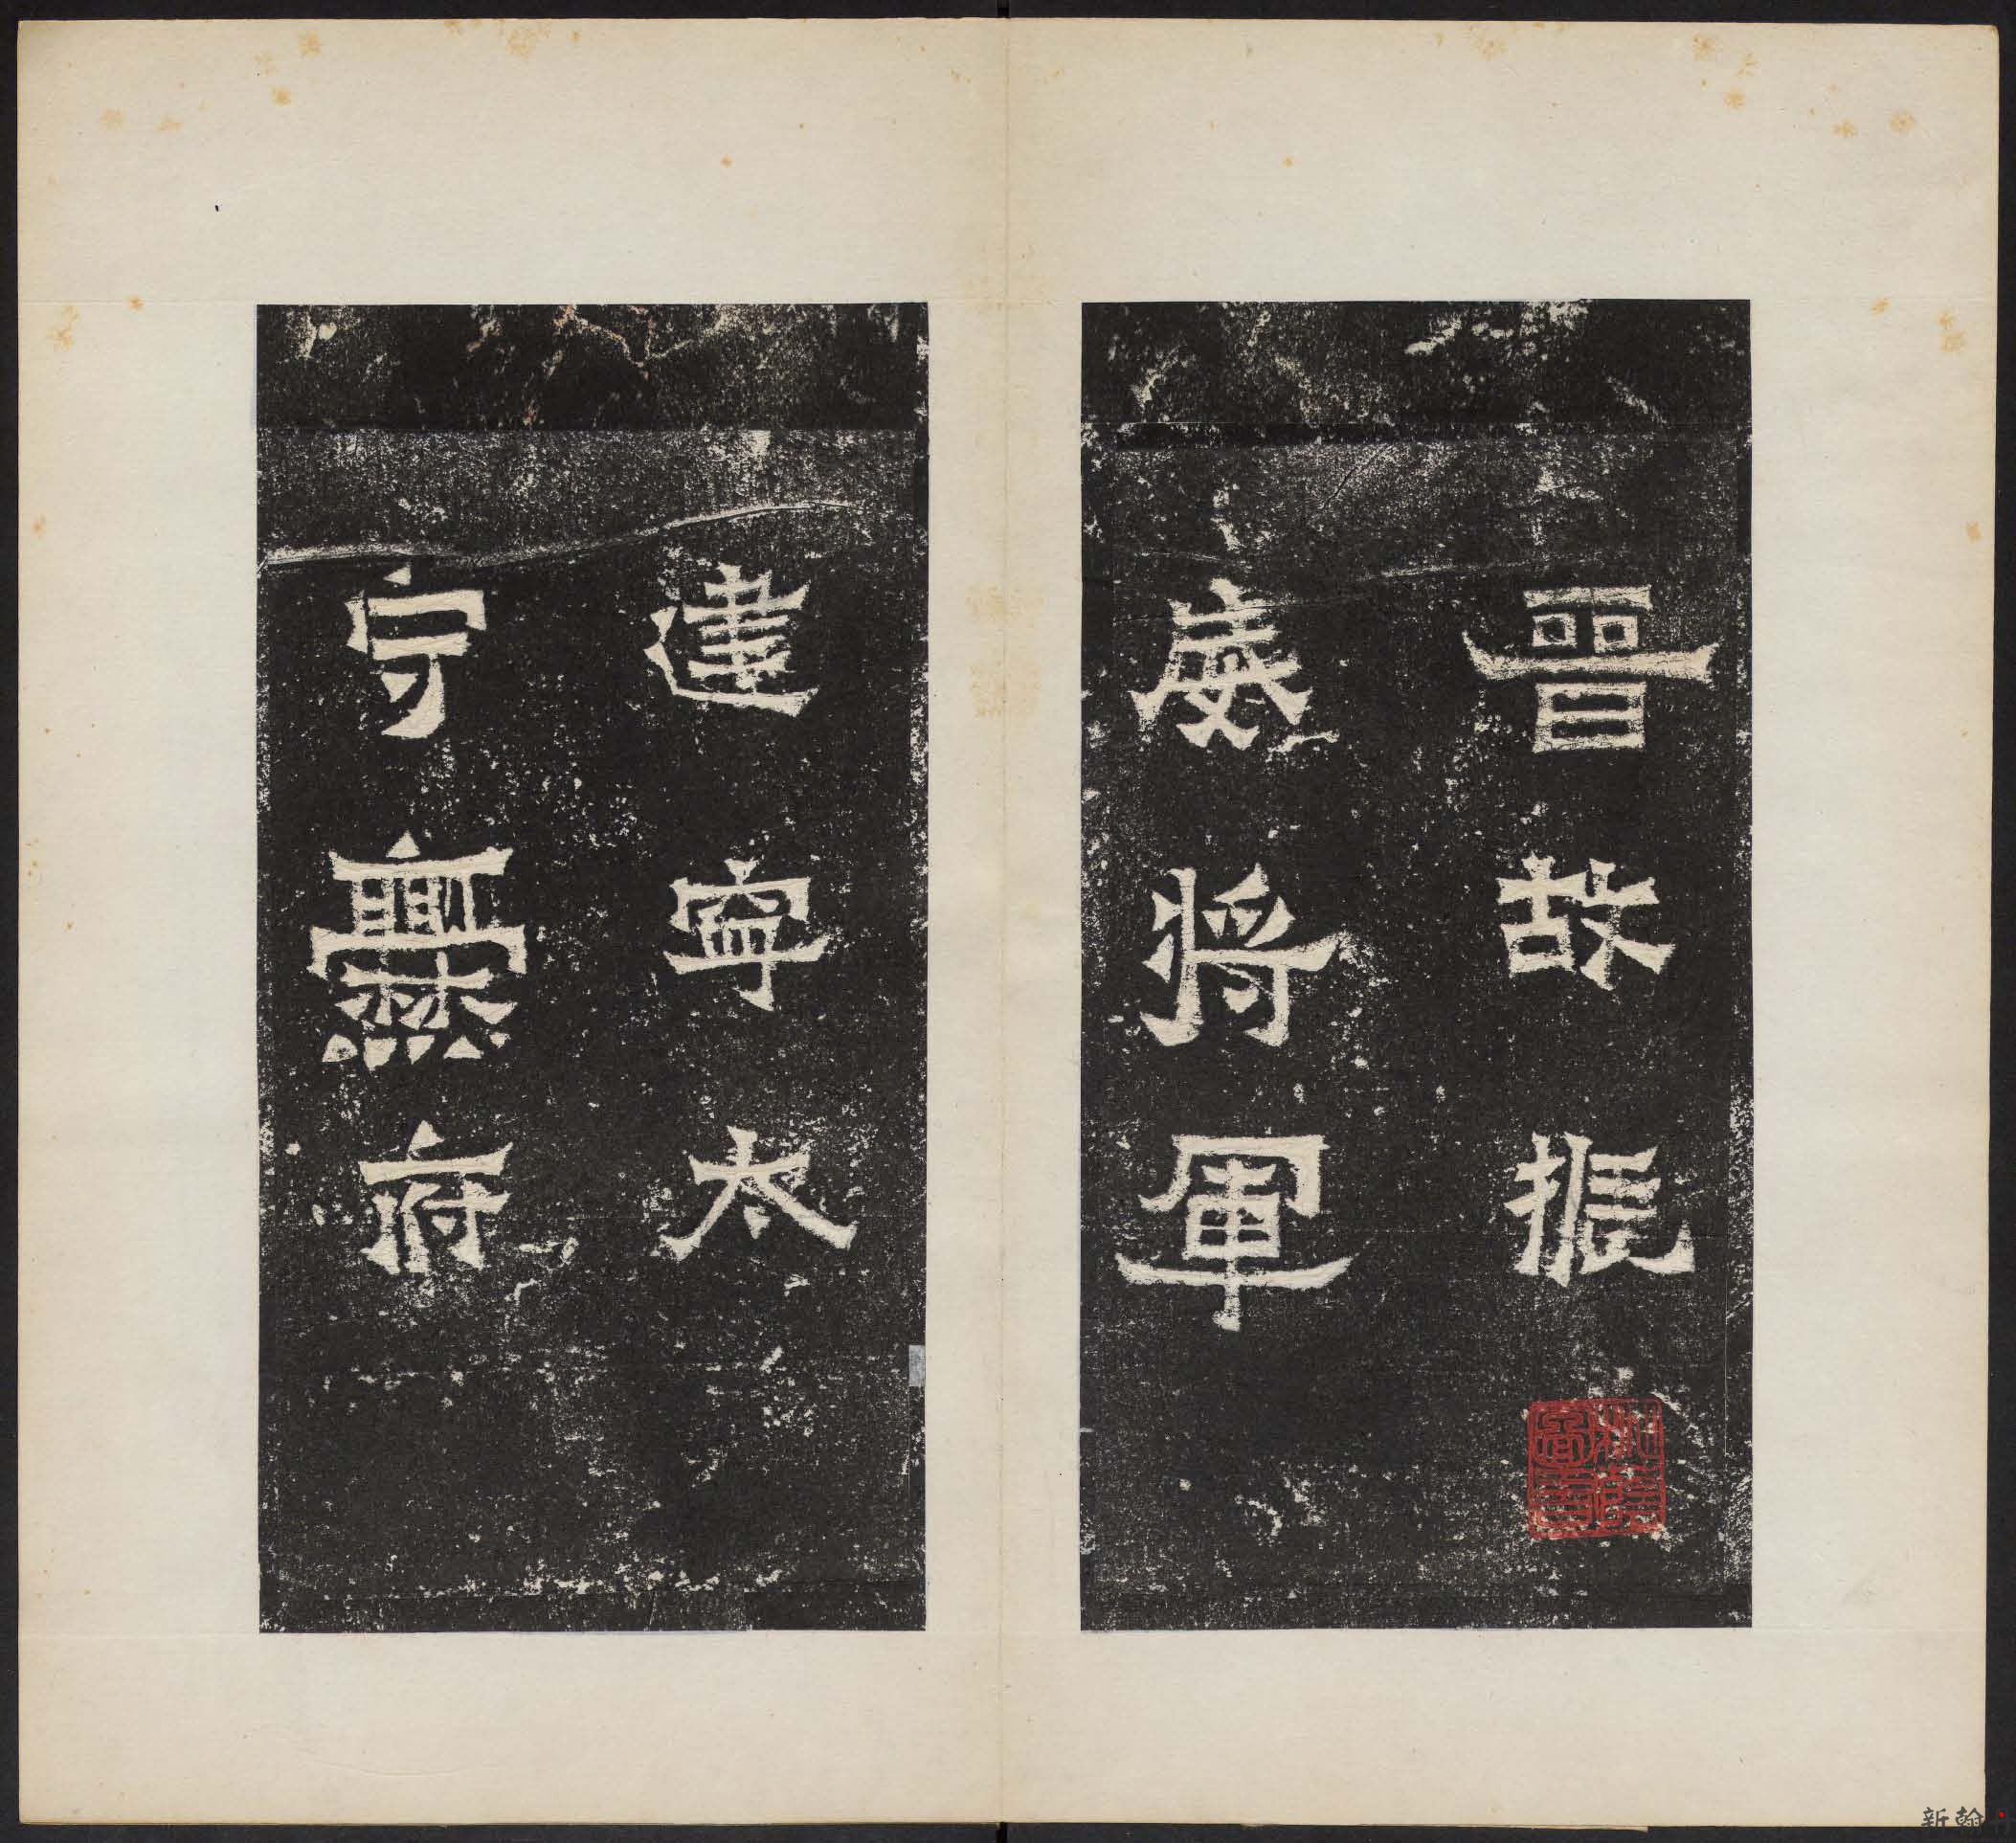 晉故振
威將軍
建寧太
守爨府
新翰